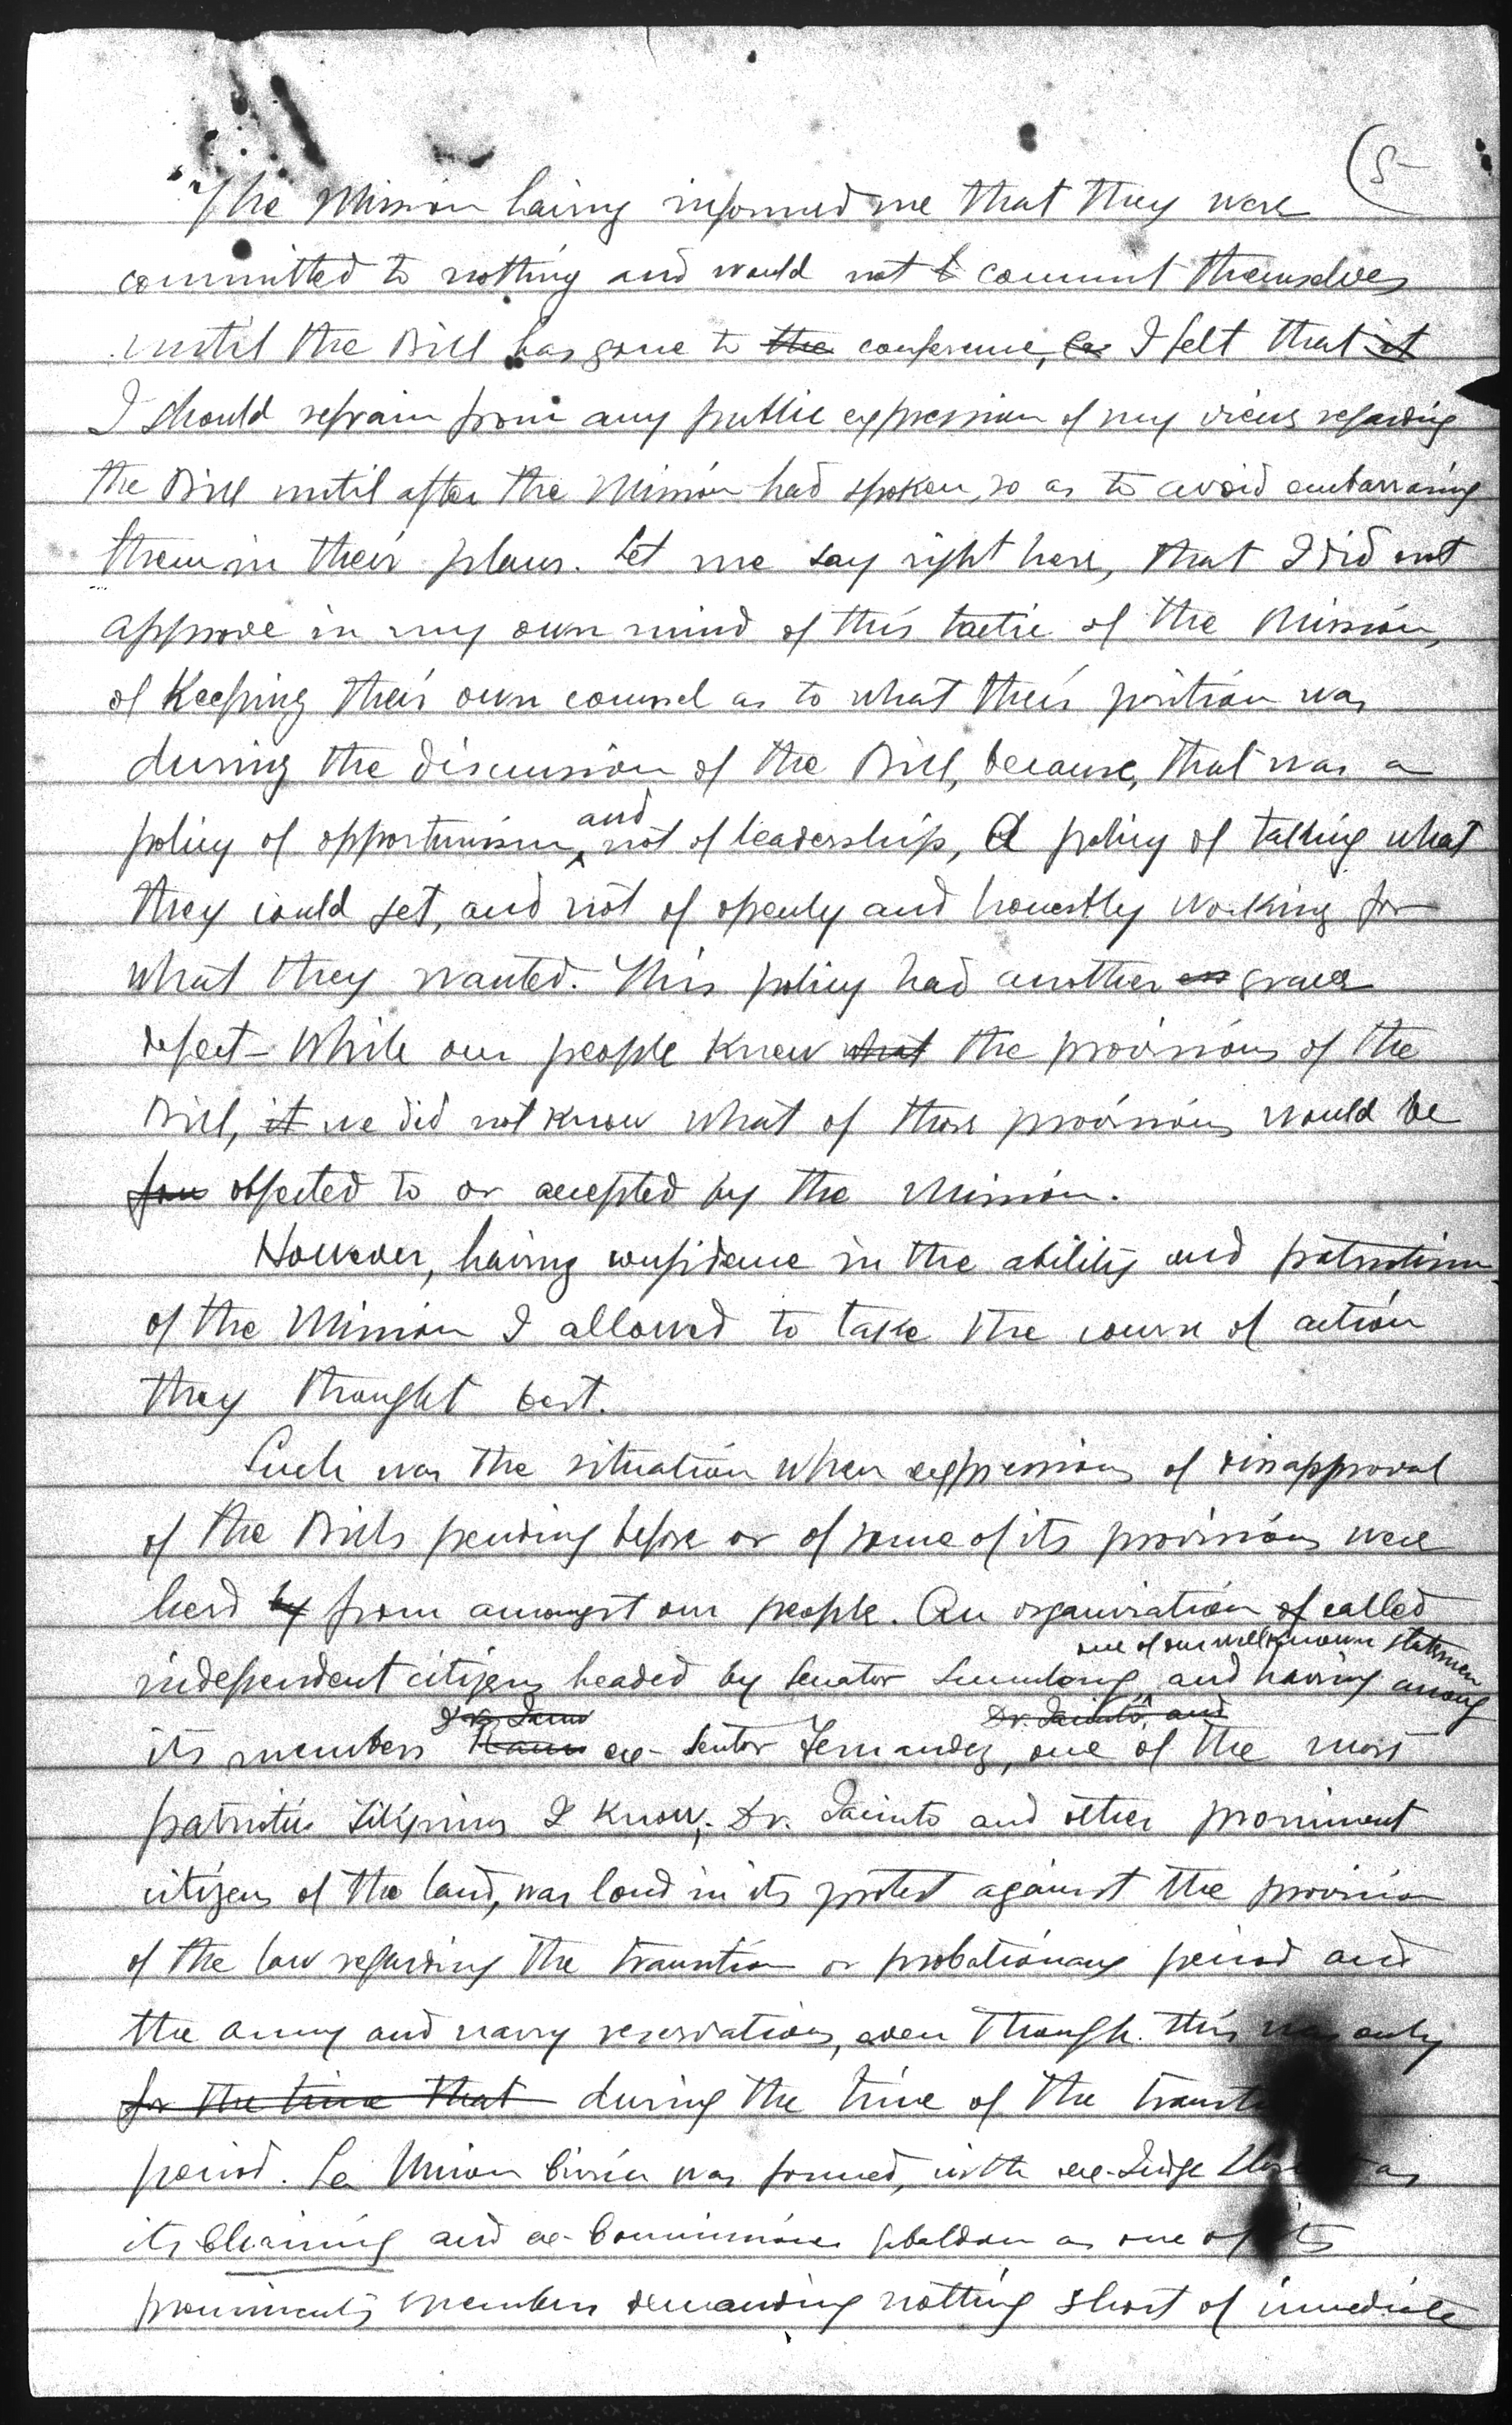 (5
The Mission having informed me that they were
committed to nothing and would not t commit themselves
until the Bill has gone to the conference, I felt that it
I should refrain from any public expression of my views regarding
the Bill until after the Mission had spoken, so as to avoid embarrasing
them in their plans. Let me say right here, that I did not
approve in my own mind of this tactic of the Mission,
of keeping their own counsel as to what their position was
during the discussion of the Bill, because, that was a
policy of opportunism, and not of leadership, A policy of talking what
they could get, and not of openly and honestly working for
what they wanted. This policy had another grave
defect - While our people knew what the provisions of the
Bill, it we did not know what of those provisions would be
objected to or accepted by the Mission.
However, having confidence in the ability and patriotism
of the Mission I allowed to take the course of action
they thought best.
Such was the situation when expressions of disapproval
of the Bills pending before or of some of its provisions were
herd by from amongst our people. An organization of called
one of our well known statesmen
independent citizens headed by Senator Sumulong, and having among
Dr. Jacinto, and
its members ex-Sentor Fernandez, one of the most
patriotic Filipinos I know, Dr. Jacinto and other prominent
citizens of the land, was loud in its protest against the provision
of the law regarding the transition or probationary period and
the army and navy reservations, even though this was only
for the time that during the time of the
period. La Union Civica was formed, with ex-Judge as
its and ex- as one of its
prominents members demanding nothing short of immediate